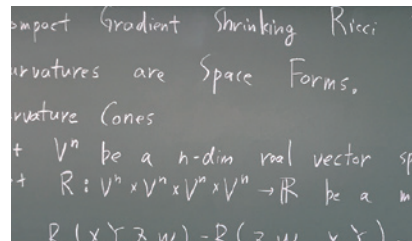 ompact Gradient Shrinking Ricci
urvatures are Space Forms.
rvature Cones
t Vⁿ be a n-dim real vector sp
t R : Vⁿ × Vⁿ × Vⁿ × Vⁿ → ℝ be a m
R(X Y Z W) = R(Z W X Y)